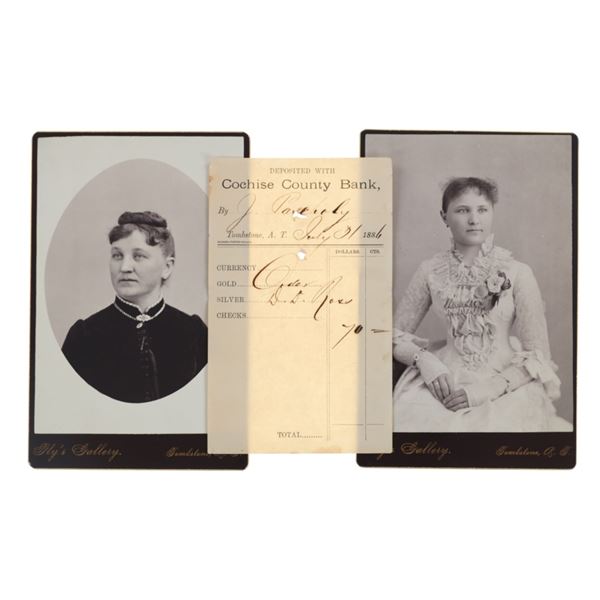 DEPOSITED WITH
Cochise County Bank,
By J.
Tombstone, A. T. July 31 1886
DOLLARS. CTS.
CURRENCY
GOLD Order
SILVER D. D. Ross
70 =
CHECKS
TOTAL
Fly's Gallery. Tombstone, A.
Gallery. Tombstone, A. T.